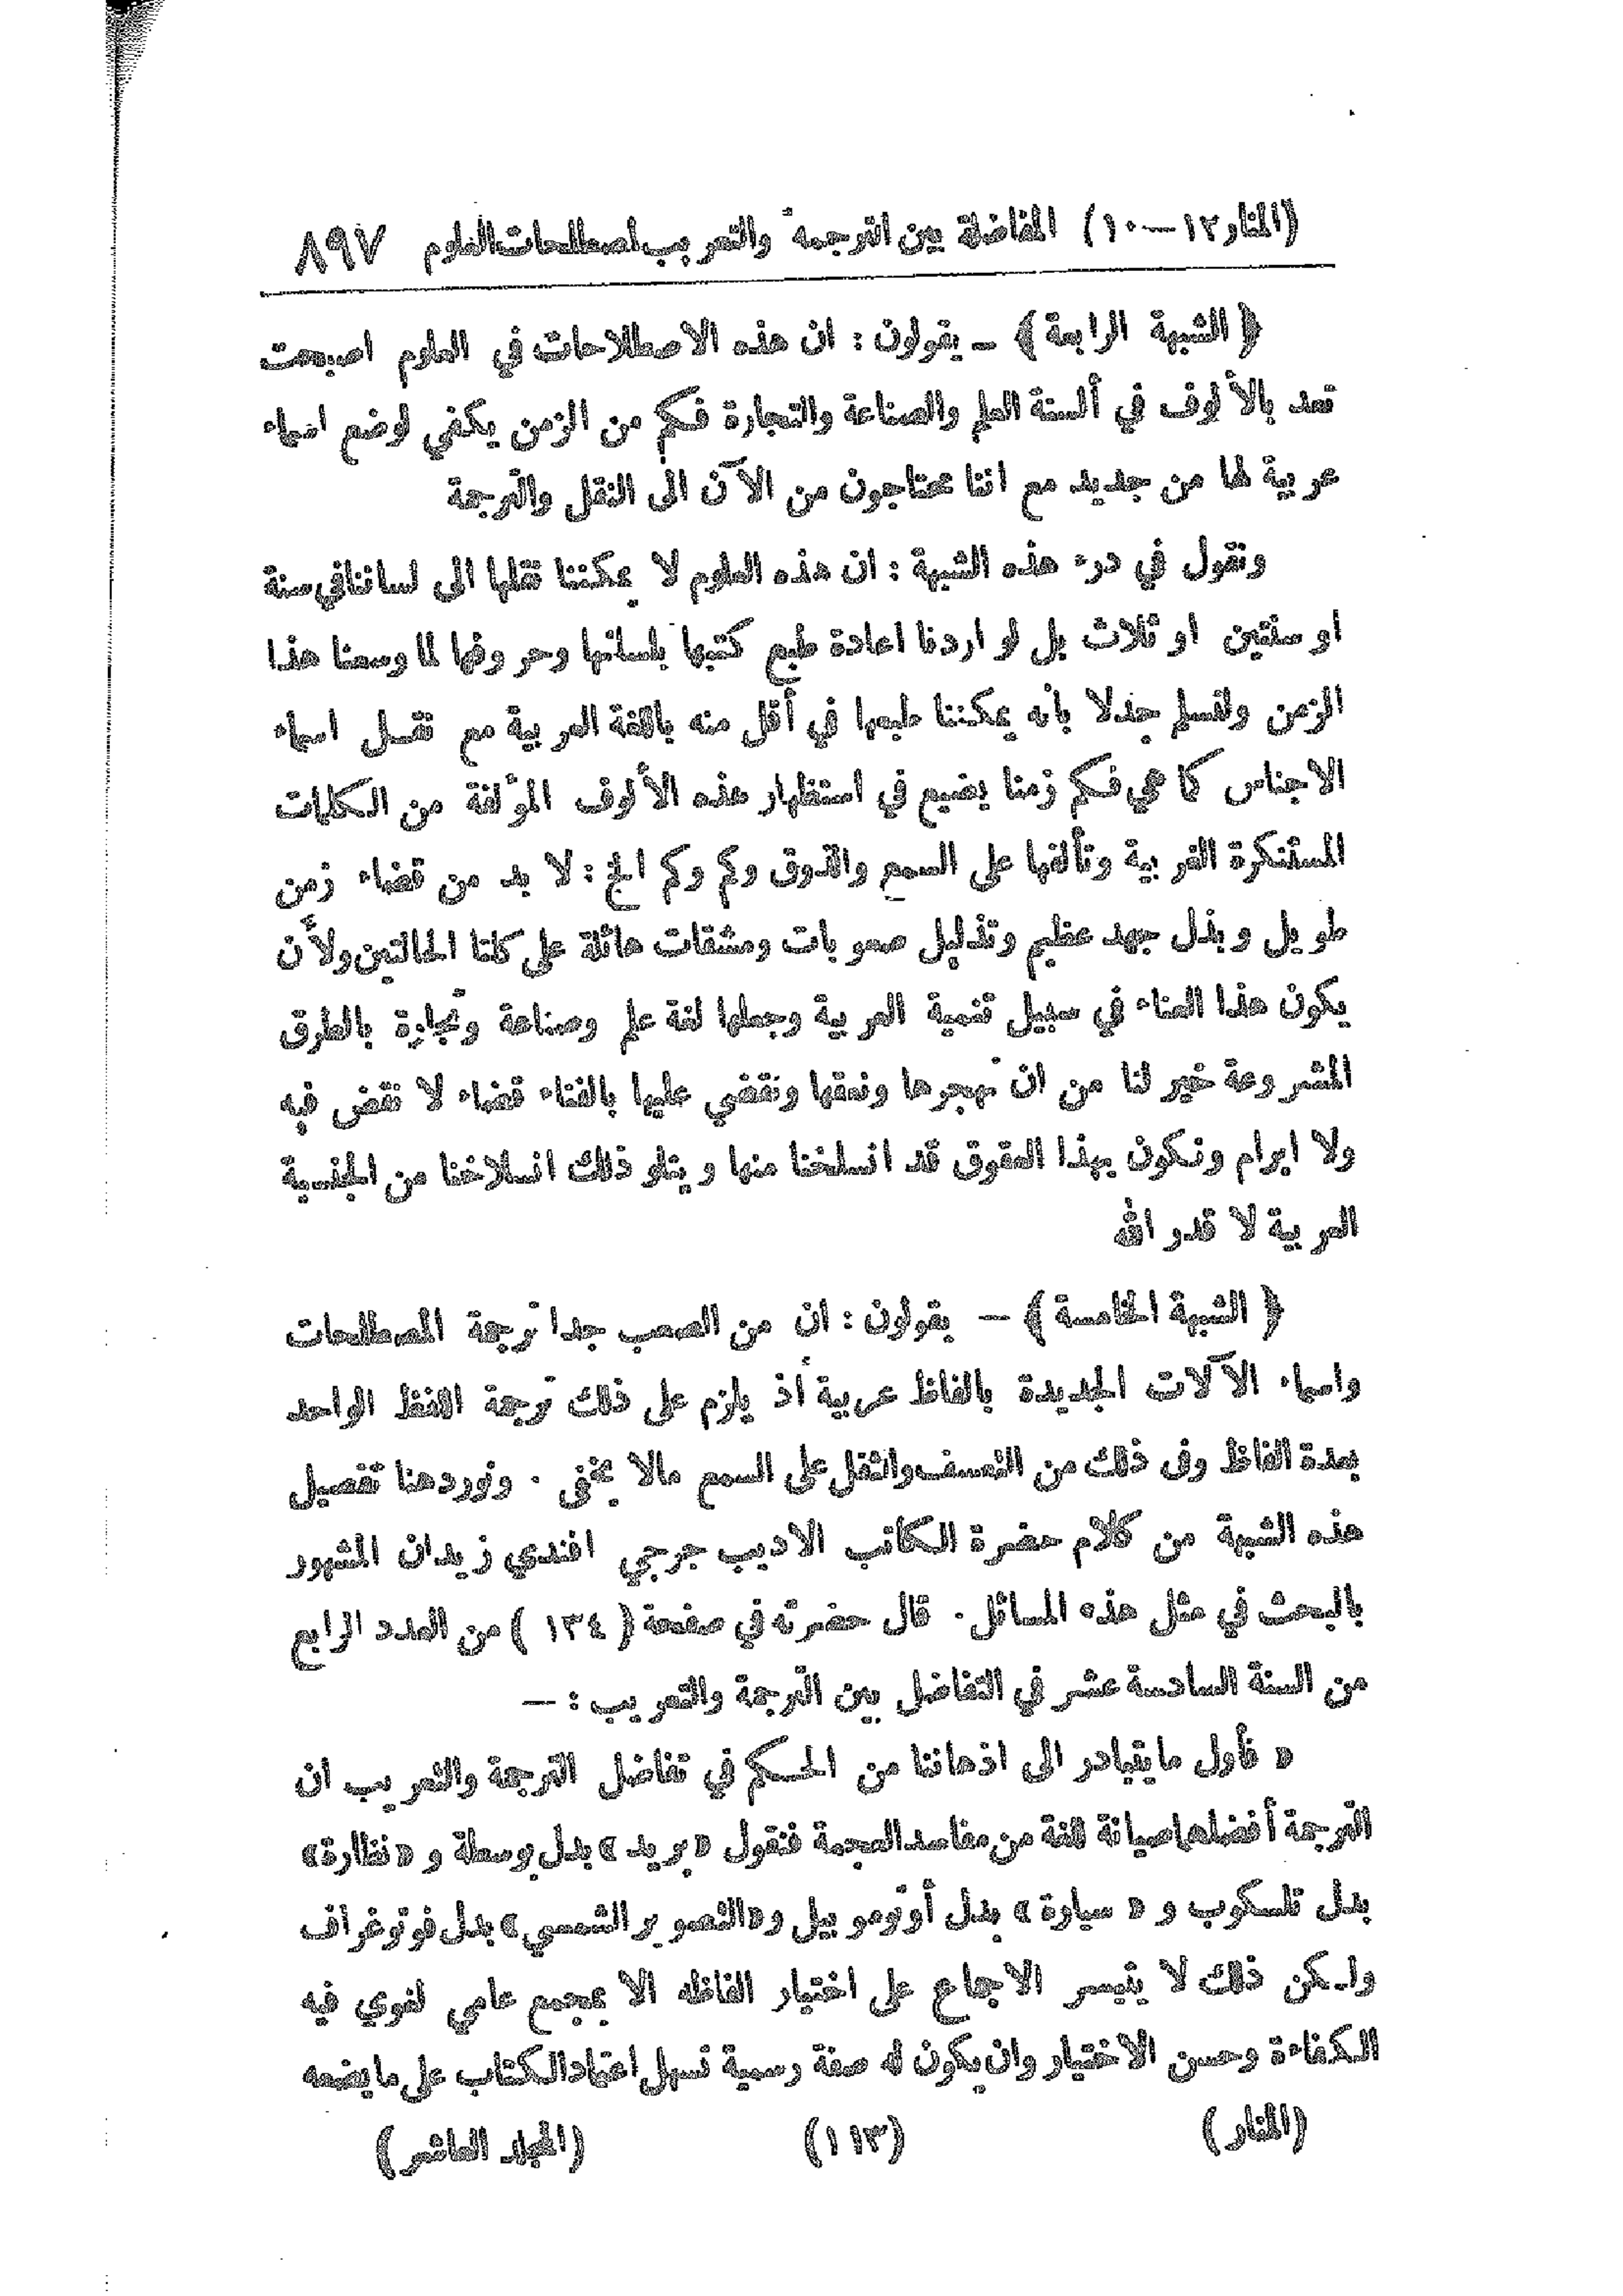 (المنار ١٢—١٠) المفاضلة بين الترجمة والتعريب لصطلحات العلوم ٨٩٧
﴿ الشبهة الرابعة ﴾ — يقولون : ان هذه الاصطلاحات في العلوم اصبحت
تعد بالألوف في ألسنة العلم والصناعة والتجارة فكم من الزمن يكفي لوضع اسماء
عربية لها من جديد مع اننا محتاجون من الآن الى النقل والترجمة
ونقول في درء هذه الشبهة : ان هذه العلوم لا يمكننا نقلها الى لساننا في سنة
او سنتين او ثلاث بل لو اردنا اعادة طبع كتبها بلسانها وحروفها لما وسعنا هذا
الزمن ولنسلم جدلا بأنه يمكننا طبعها في أقل منه باللغة العربية مع نقل اسماء
الاجناس كما هي فكم زمنا يضيع في استظهار هذه الألوف المؤلفة من الكلمات
المستنكرة الغريبة وتألفها على السمع والذوق وكم وكم الخ : لا بد من قضاء زمن
طويل وبذل جهد عظيم وتذليل صعوبات ومشقات هائلة على كلتا الحالتين ولأن
يكون هذا العناء في سبيل تنمية العربية وجعلها لغة علم وصناعة وتجارة بالطرق
المشروعة خير لنا من ان نهجرها ونعقها ونقضي عليها بالفناء قضاء لا نقض فيه
ولا ابرام ونكون بهذا العقوق قد انسلخنا منها ويتلو ذلك انسلاخنا من الجنسية
العربية لا قدر الله
﴿ الشبهة الخامسة ﴾ — يقولون : ان من الصعب جدا ترجمة المصطلحات
واسماء الآلات الجديدة بالفاظ عربية أذ يلزم على ذلك ترجمة اللفظ الواحد
بعدة الفاظ وفى ذلك من التعسف والثقل على السمع مالا يخفى . ونورد هنا تفصيل
هذه الشبهة من كلام حضرة الكاتب الاديب جرجي افندي زيدان المشهور
بالبحث في مثل هذه المسائل . قال حضرته في صفحة ( ١٣٤ ) من العدد الرابع
من السنة السادسة عشر في التفاضل بين الترجمة والتعريب : —
« فأول ما يتبادر الى اذهاننا من الحكم في تفاضل الترجمة والتعريب ان
الترجمة أفضلها صيانة للغة من مفاسد العجمة فنقول « بريد » بدل بوسطة و « نظارة »
بدل تلسكوب و « سيارة » بدل أوتوموبيل و « التصوير الشمسي » بدل فوتوغراف
ولكن ذلك لا يتيسر الاجماع على اختيار الفاظه الا بمجمع عامي لغوي فيه
الكفاءة وحسن الاختيار وان يكون له صفة رسمية تسهل اعتماد الكتاب على ما يضعه
(المنار) (١١٣) (المجلد العاشر)